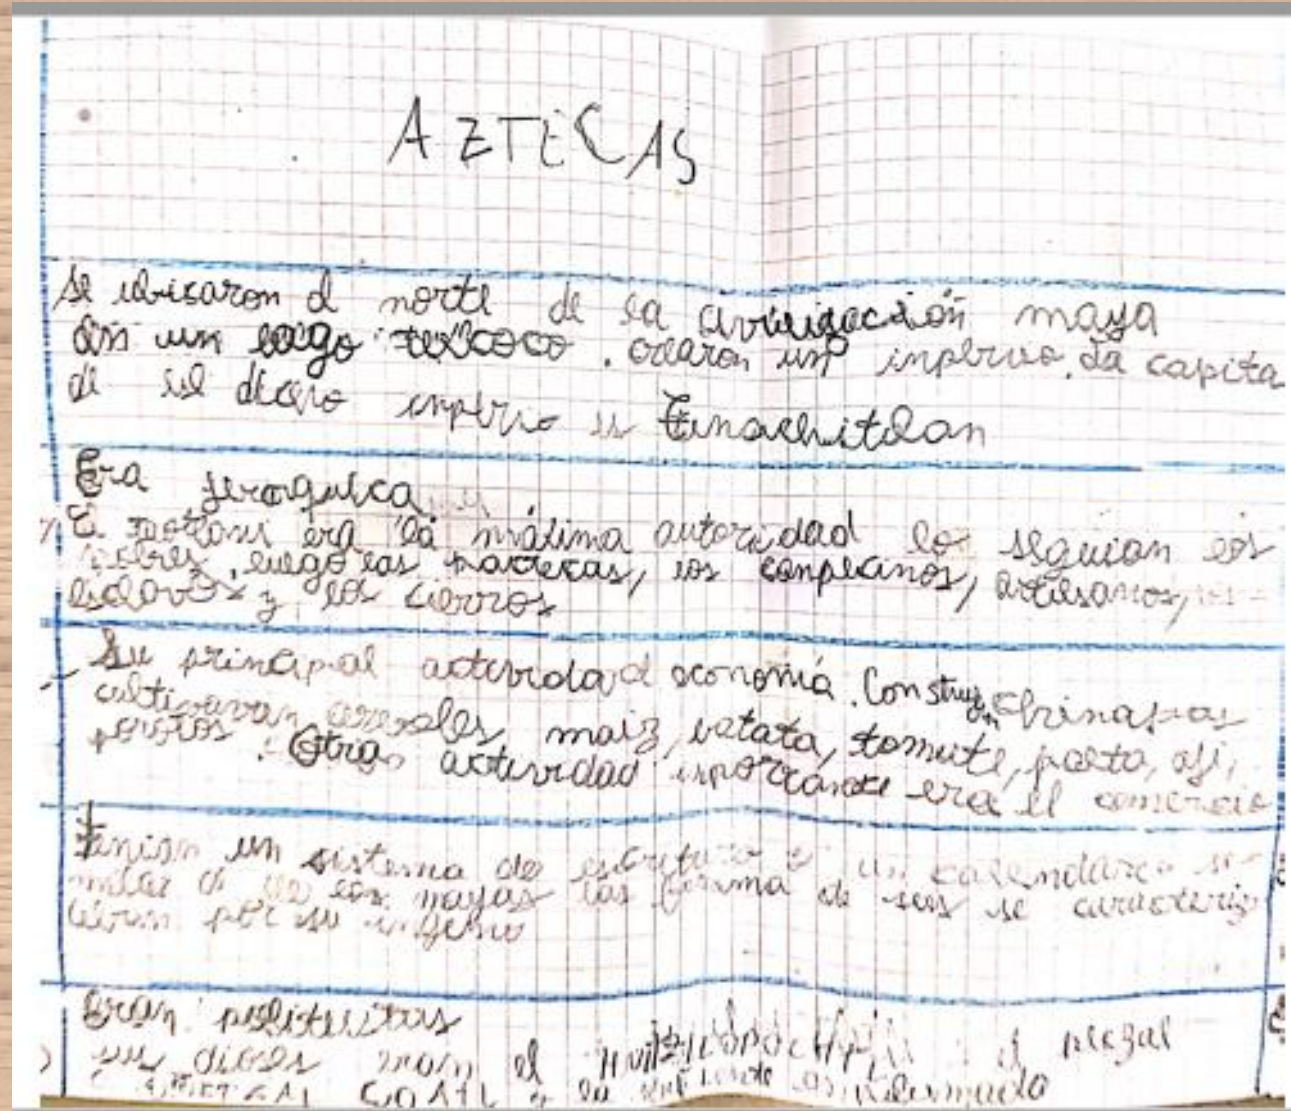 AZTECAS
Se ubicaron al norte de la civilización maya
en un lago texcoco. crearon un inperio. La capita
de ese dicho inperio es Tenochitlan
Era jerarquica
El era la máxima autoridad lo seguian los
nobles, luego las , los canpecinos, artesanos,
esclavos y los cierros
Su principal actividad economía. Construyen chinapas
cultivavan cereales, maiz, vatata, tomate, palta, aji,
porotos. Otra actividad inportante era el comercio
Tenian un sistema de escritura y un calendario si
milar al de los mayas las forma de se caracteriz
por su ingenio
Eran politeistas
sus dioses eran el
COATL la serpiente enplumada